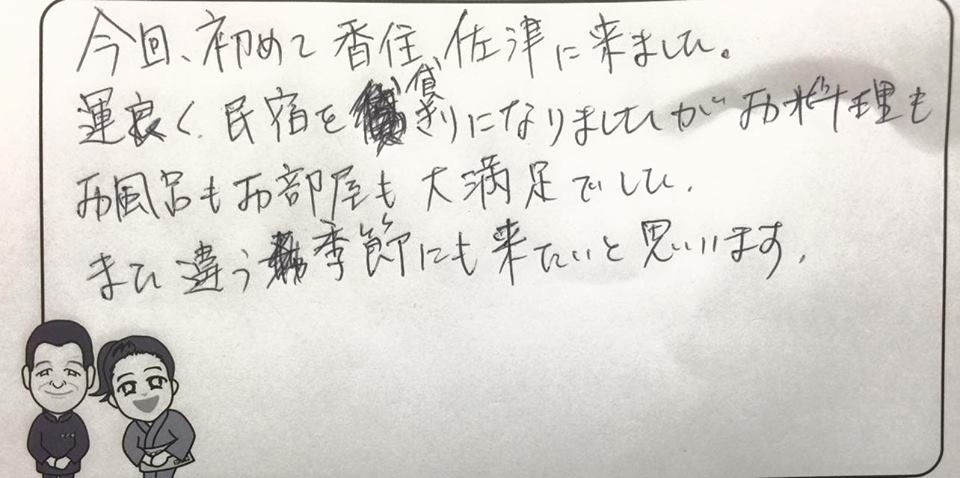 今回、初めて香住、佐津に来ました。
運良く、民宿を貸きりになりましたがお料理も
お風呂もお部屋も大満足でした。
また違う季節にも来たいと思います。